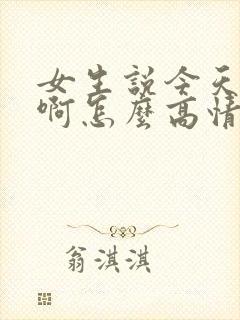 女生説今天
啊怎麼高情
翁淇淇